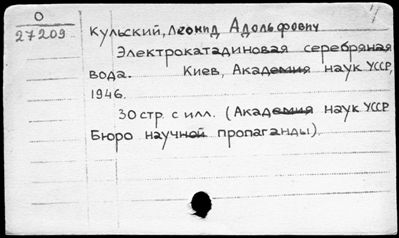 О
27209
Кульский, Леонид Адольфович
Электрокатадиновая серебряная
вода. Киев, Академия наук УССР,
1946.
30 стр. с илл. (Академия наук УССР
Бюро научной пропаганды).